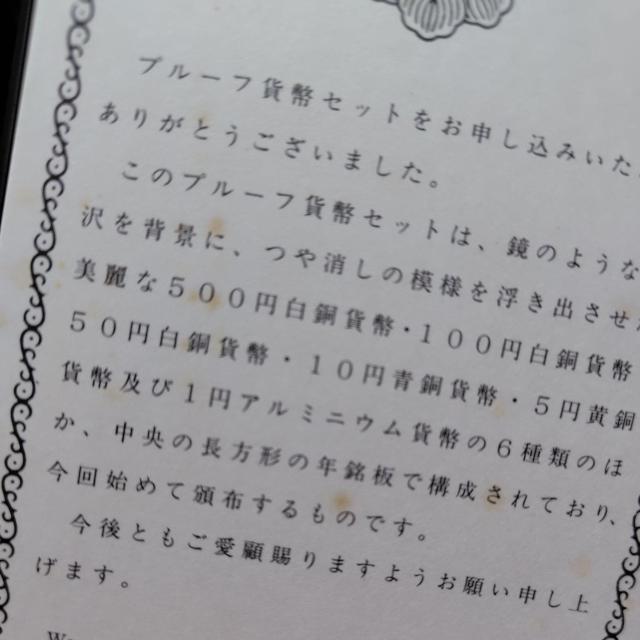 プルーフ貨幣セットをお申し込みいた
ありがとうございました。
このプルーフ貨幣セットは、鏡のような
沢を背景に、つや消しの模様を浮き出させ
美麗な500円白銅貨幣・100円白銅貨幣
50円白銅貨幣・10円青銅貨幣・5円黄銅
貨幣及び1円アルミニウム貨幣の6種類のほ
か、中央の長方形の年銘板で構成されており、
今回始めて頒布するものです。
今後ともご愛顧賜りますようお願い申し上
げます。